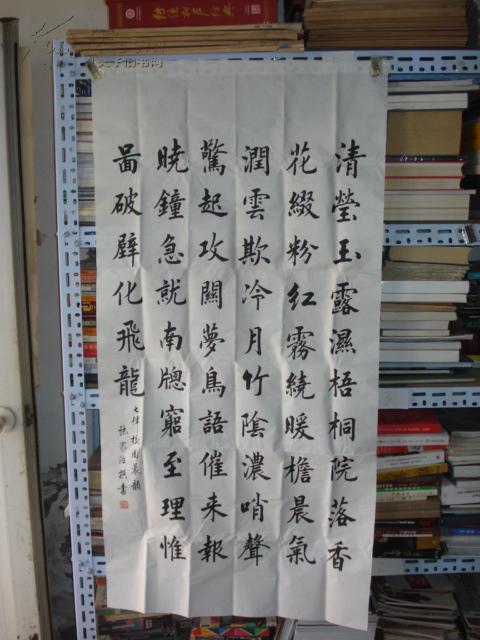 清瑩玉露濕梧桐院落香
花綴粉紅霧繞暖檐晨氣
潤雲欺冷月竹陰濃哨聲
驚起攻關夢鳥語催来報
曉鐘急就南牕窮至理惟
啚破壁化飛龍
七律校園晨韻
撰書